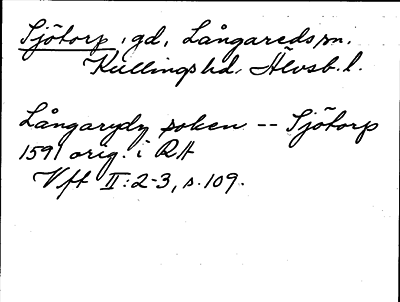 Sjötorp, gd, Långareds sn.
Kullings hd. Älvsb. l.
Långarydz soken -- Sjötorp
1591 orig. i RA
Vft II:2-3, s. 109.